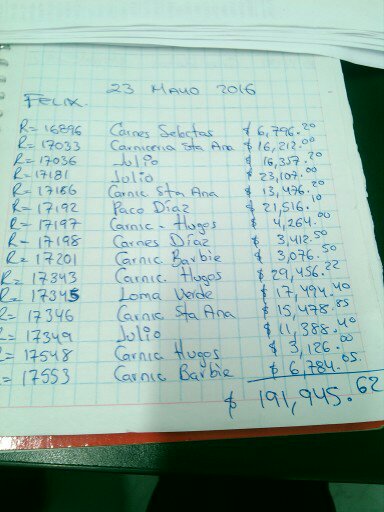 23 Mayo 2016
FELIX.
R= 16896 Carnes Selectas $ 6,796.20
R= 17033 Carniceria Sta Ana $ 16,212.00
R= 17036 Julio $ 16,357.20
R= 17181 Julio $ 23,107.00
R= 17186 Carnic Sta Ana $ 13,476.20
R= 17192 Paco Diaz $ 21,516.10
R= 17197 Carnic. Hugos $ 4,264.00
R= 17198 Carnes Díaz $ 3,412.50
R= 17201 Carnic. Barbie $ 3,076.50
R= 17343 Carnic. Hugos $ 29,456.22
R= 17345 Loma Verde $ 17,494.40
R= 17346 Carnic Sta Ana $ 15,478.85
R= 17349 Julio $ 11,388.40
R= 17548 Carnic Hugos $ 3,126.00
= 17553 Carnic Barbie $ 6,784.05
$ 191,945.62